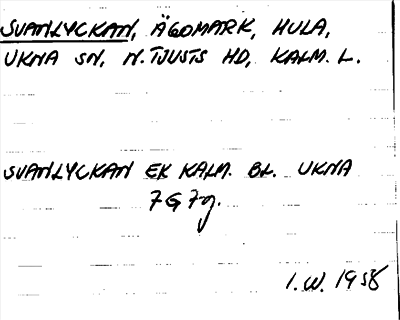 SVANLYCKAN, ÄGOMARK, HULA,
UKNA SN, N. TJUSTS HD, KALM. L.
SVANLYCKAN EK KALM. BL. UKNA
7G7g.
I.W. 1958